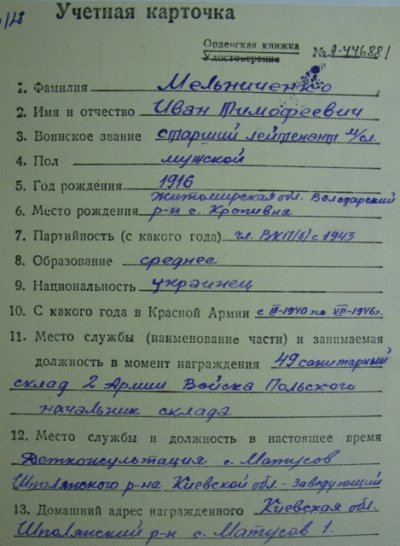 Учетная карточка
Орденская книжка
Удостоверение
№ А-446881
1. Фамилия Мельниченко
2. Имя и отчество Иван Тимофеевич
3. Воинское звание старший лейтенант м/сл.
4. Пол мужской
5. Год рождения 1916
Житомирская обл. Володарский
6. Место рождения р-н с. Кропивня
7. Партийность (с какого года) чл. ВКП(б) с 1943
8. Образование среднее
9. Национальность украинец
10. С какого года в Красной Армии с III-1940 по VII-1946г.
11. Место службы (наименование части) и занимаемая
должность в момент награждения 49 санитарный
склад 2 Армии Войска Польского
начальник склада
12. Место службы и должность в настоящее время
Детконсультация с. Матусов
Шполянского р-на Киевской обл. - заведующий
13. Домашний адрес награжденного Киевская обл.
Шполянский р-н с. Матусов 1.